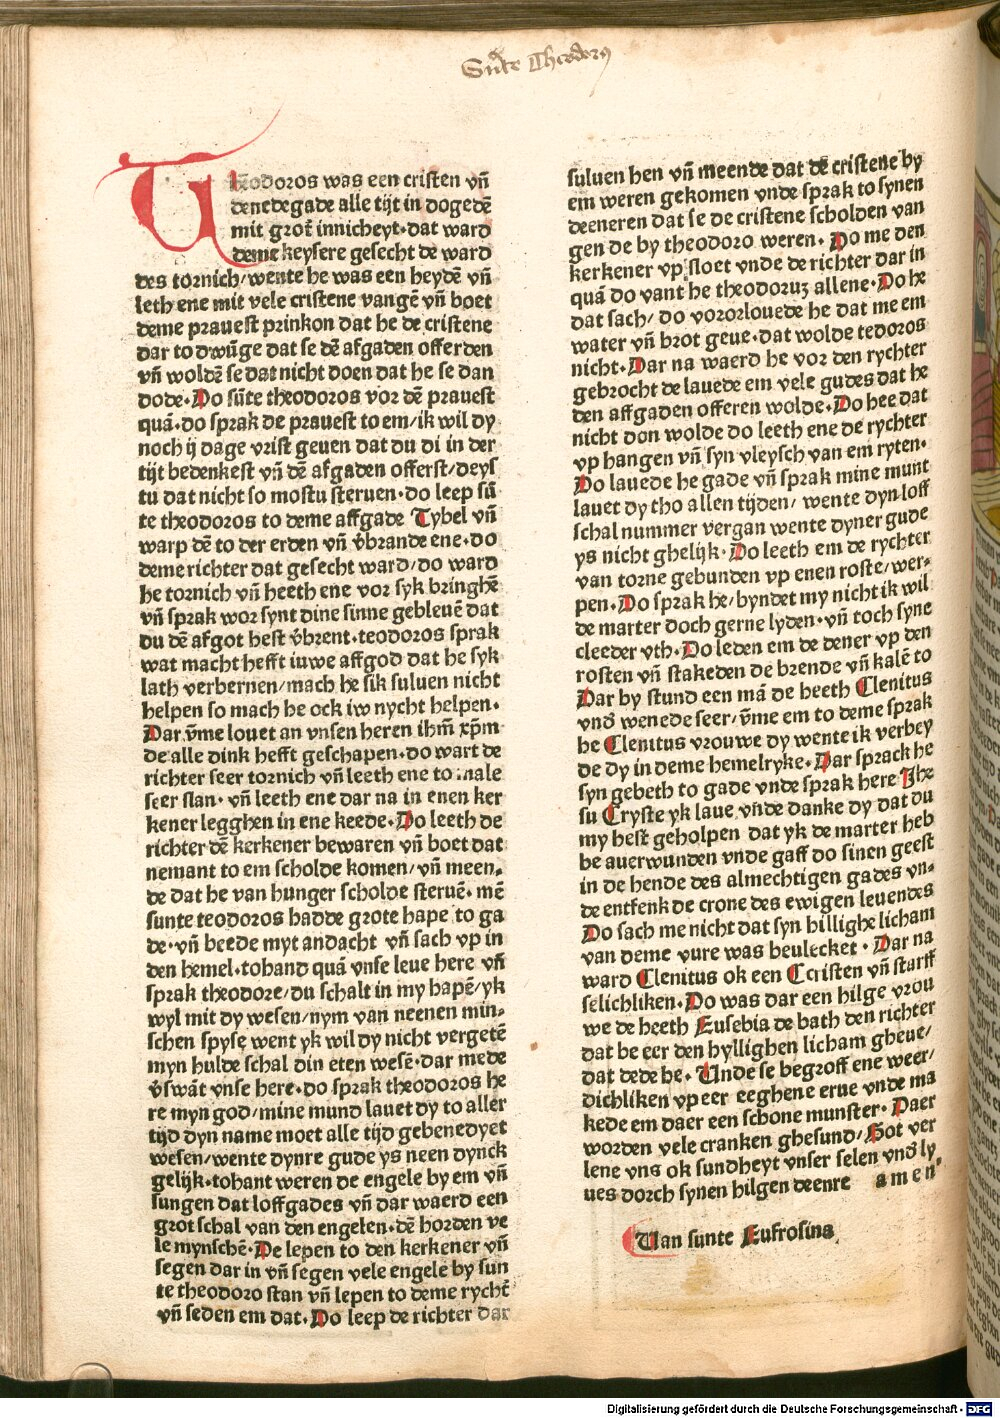 Sūte Theodorꝯ
Theodoros was een cristen vn̄
denede gade alle tijt in dogedē
mit grot innicheyt·dat ward
deme keysere gesecht de ward
des tornich/wente he was een heydē vn̄
leth ene mit vele cristene vangē vn̄ boet
deme prauest prinkon dat he de cristene
dar to dwūge dat se dē afgaden offerden
vn̄ woldē se dat nicht doen dat he se dan
dode·Do sūte theodoros vor dē prauest
quā·do sprak de prauest to em/ik wil dy
noch ij dage vrist geuen dat du di in der
tijt bedenkest vn̄ dē afgaden offerst/deys
tu dat nicht so mostu steruen·do leep sū
te theodoros to deme affgade Tybel vn̄
warp dē to der erden vn̄ v̄brande ene·do
deme richter dat gesecht ward/do ward
he tornich vn̄ heeth ene vor syk bringhē
vn̄ sprak wor synt dine sinne gebleuē dat
du dē afgot hest v̄brent·teodoros sprak
wat macht hefft iuwe affgod dat he syk
lath verbernen/mach he sik suluen nicht
helpen so mach he ock iw nycht helpen·
Dar v̄me louet an vnsen heren ihm̄ xp̄m
de alle dink hefft geschapen·do wart de
richter seer tornich vn̄ leeth ene to male
seer slan·vn̄ leeth ene dar na in enen ker
kener legghen in ene keede·Do leeth de
richter dē kerkener bewaren vn̄ boet dat
nemant to em scholde komen/vn̄ meen⸗
de dat he van hunger scholde steruē·mē
sunte teodoros hadde grote hape to ga
de·vn̄ beede myt andacht vn̄ sach vp in
den hemel·tohand quā vnse leue here vn̄
sprak theodore/du schalt in my hapē/yk
wyl mit dy wesen/nym van neenen min⸗
schen spyse went yk wil dy nicht vergetē
myn hulde schal din eten wesē·dar mede
v̄swāt vnse here·do sprak theodoros he
re myn god/mine mund lauet dy to aller
tijd dyn name moet alle tijd gebenedyet
wesen/wente dynre gude ys neen dynck
gelijk·tohant weren de engele by em vn̄
sungen dat loff gades vn̄ dar waerd een
grot schal van den engelen·dē horden ve
le mynschē·De lepen to den kerkener vn̄
segen dar in vn̄ segen vele engele by sun
te theodoro stan vn̄ lepen to deme rycht̄
vn̄ seden em dat·Do leep de richter dar
suluen hen vn̄ meende dat dē cristene by
em weren gekomen vnde sprak to synen
deeneren dat se de cristene scholden van
gen de by theodoro weren·Do me den
kerkener vp sloet vnde de richter dar in
quā do vant he theodoruʒ allene·Do he
dat sach/do vororlouede he dat me em
water vn̄ brot geue·dat wolde tedoros
nicht·Dar na waerd he vor den rychter
gebrocht de lauede em vele gudes dat he
den affgaden offeren wolde·Do hee dat
nicht don wolde do leeth ene de rychter
vp hangen vn̄ syn vleysch van em ryten·
Do lauede he gade vn̄ sprak mine munt
lauet dy tho allen tijden/wente dyn loff
schal nummer vergan wente dyner gude
ys nicht ghelijk·Do leeth em de rychter
van torne gebunden vp enen roste/wer⸗
pen·Do sprak he/byndet my nicht ik wil
de marter doch gerne lyden·vn̄ toch syne
cleeder vth·Do leden em de dener vp den
rosten vn̄ stakeden de brende vn̄ kalē to
Dar by stund een mā de heeth Clenitus
vnd̄ wenede seer/v̄me em to deme sprak
he Clenitus vrouwe dy wente ik verbey
de dy in deme hemelryke·Dar sprack he
syn gebeth to gade vnde sprak here Ihe
su Cryste yk laue vnde danke dy dat du
my hest geholpen dat yk de marter heb
be auerwunden vnde gaff do sinen geest
in de hende des almechtigen gades vn⸗
de entfenk de crone des ewigen leuendes
Do sach me nicht dat syn hillighe licham
van deme vure was beulecket·Dar na
ward Clenitus ok een Ccristen vn̄ starff
selichliken·Do was dar een hilge vrou
we de heeth Eusebia de bath den richter
dat he eer den hyllighen licham gheue/
dat dede he·Unde se begroff ene weer/
dichliken vp eer eeghene erue vnde ma
kede em daer een schone munster·Daer
worden vele cranken ghesund/Got ver
lene vns ok sundheyt vnser selen vnd̄ ly
ues dorch synen hilgen deenre amen·
Uan sunte Eufrosina
Digitalisierung gefördert durch die Deutsche Forschungsgemeinschaft - DFG